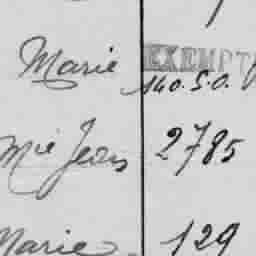 Marie EXEMPT
140.S.O.
Mie Jean 2785
Marie 129